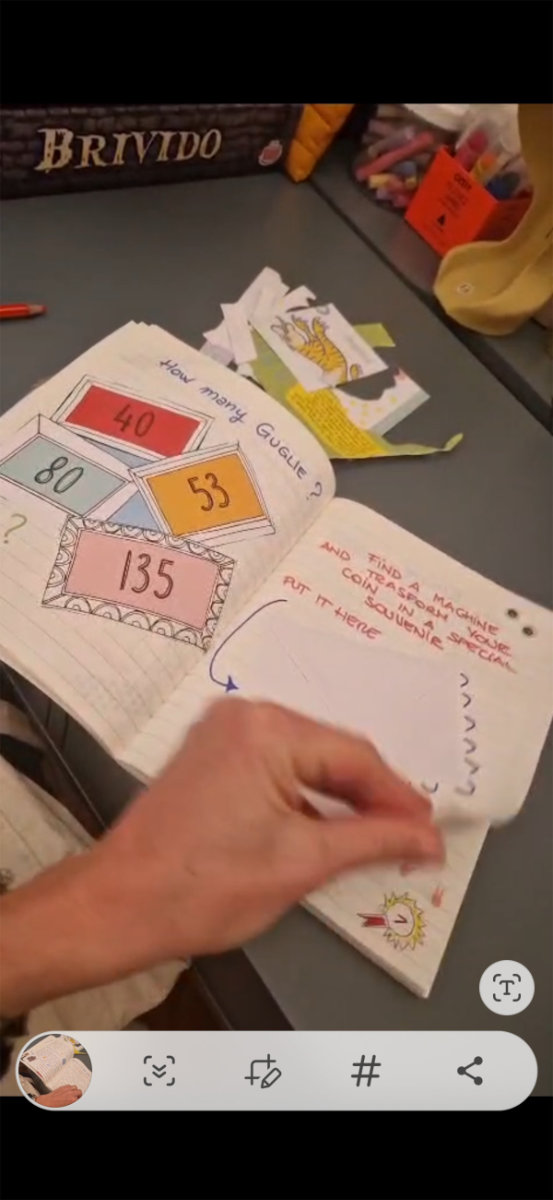 BRIVIDO
How many GUGLIE?
40
80
53
?
135
FIND A MACHINE
AND TRASFORM YOUR
COIN IN A SPECIAL
SOUVENIR
PUT IT HERE